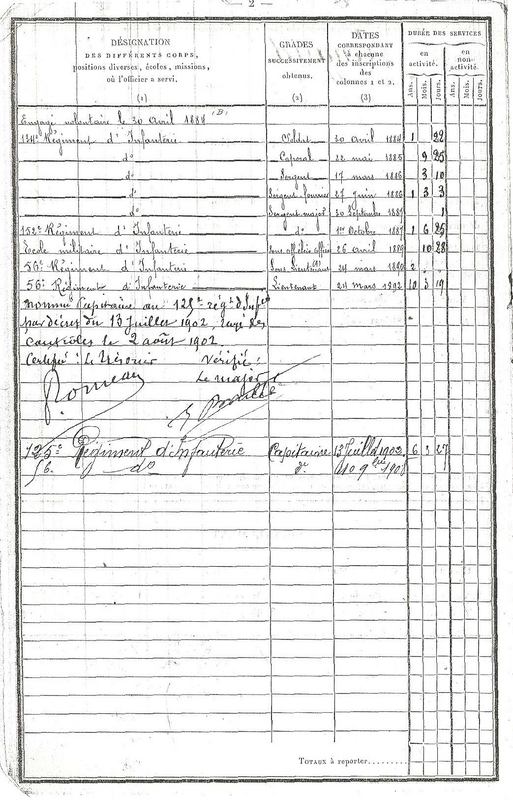 — 2 —
DÉSIGNATION
DES DIFFÉRENTS CORPS,
positions diverses, écoles, missions,
où l'officier a servi.
(1)
GRADES
SUCCESSIVEMENT
obtenus.
(2)
DATES
CORRESPONDANT
à chacune
des inscriptions
des colonnes 1 et 2.
(3)
DURÉE DES SERVICES
en activité.
en non-activité.
Ans. Mois. Jours. Ans. Mois. Jours.
Engagé volontaire le 30 avril 1884
134e Régiment d'Infanterie Soldat 30 avril 1884 1 22
do Caporal 22 mai 1885 9 25
do Sergent 17 mars 1886 3 10
do Sergent fourrier 27 juin 1886 1 3 3
do Sergent major 30 Septembre 1887 1
152e Régiment d'Infanterie do 1er Octobre 1887 1 6 25
Ecole militaire d'Infanterie 26 avril 1889 10 28
56e Régiment d'Infanterie Sous Lieutenant 24 mars 1890 2
56e Régiment d'Infanterie Lieutenant 24 mars 1892 10 3 19
nommé Capitaine au 125e rég. d'Inf.
par décret du 13 Juillet 1902, rayé des
contrôles le 2 août 1902.
Certifié : Le Trésorier Vérifié :
Le major
125e Régiment d'Infanterie Capitaine 13 Juillet 1902 6 3 27
56. do do 1908
TOTAUX à reporter